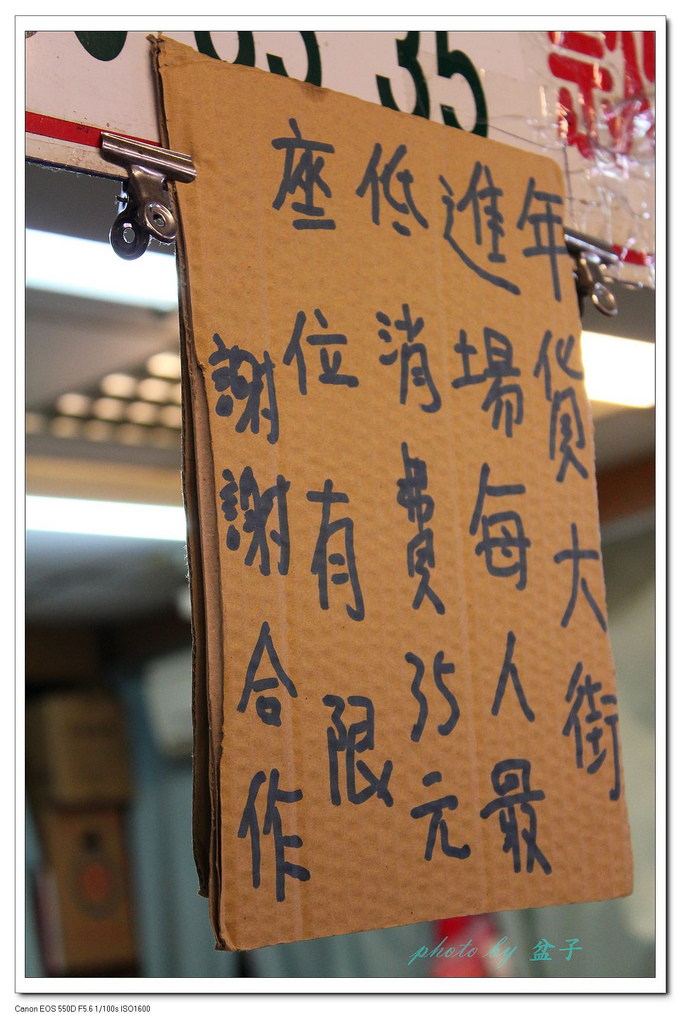 35
年貨大街
進場每人最
低消費35元
座位有限
謝謝合作
photo by 盆子
Canon EOS 550D F5.6 1/100s ISO1600